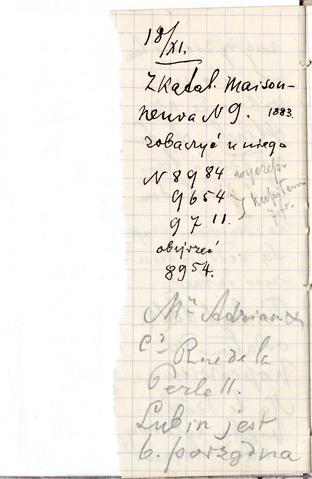 18/XI.
Z Katal. Maison-
neuva N 9. 1883.
zobaczyć u niego
N 8984
9654 } Kupiłem
9711. 7 fr.
obejrzeć
8954.
Mr Adrian &
Cie Rue de la
Perle 11.
Lubin jest
b. porządna